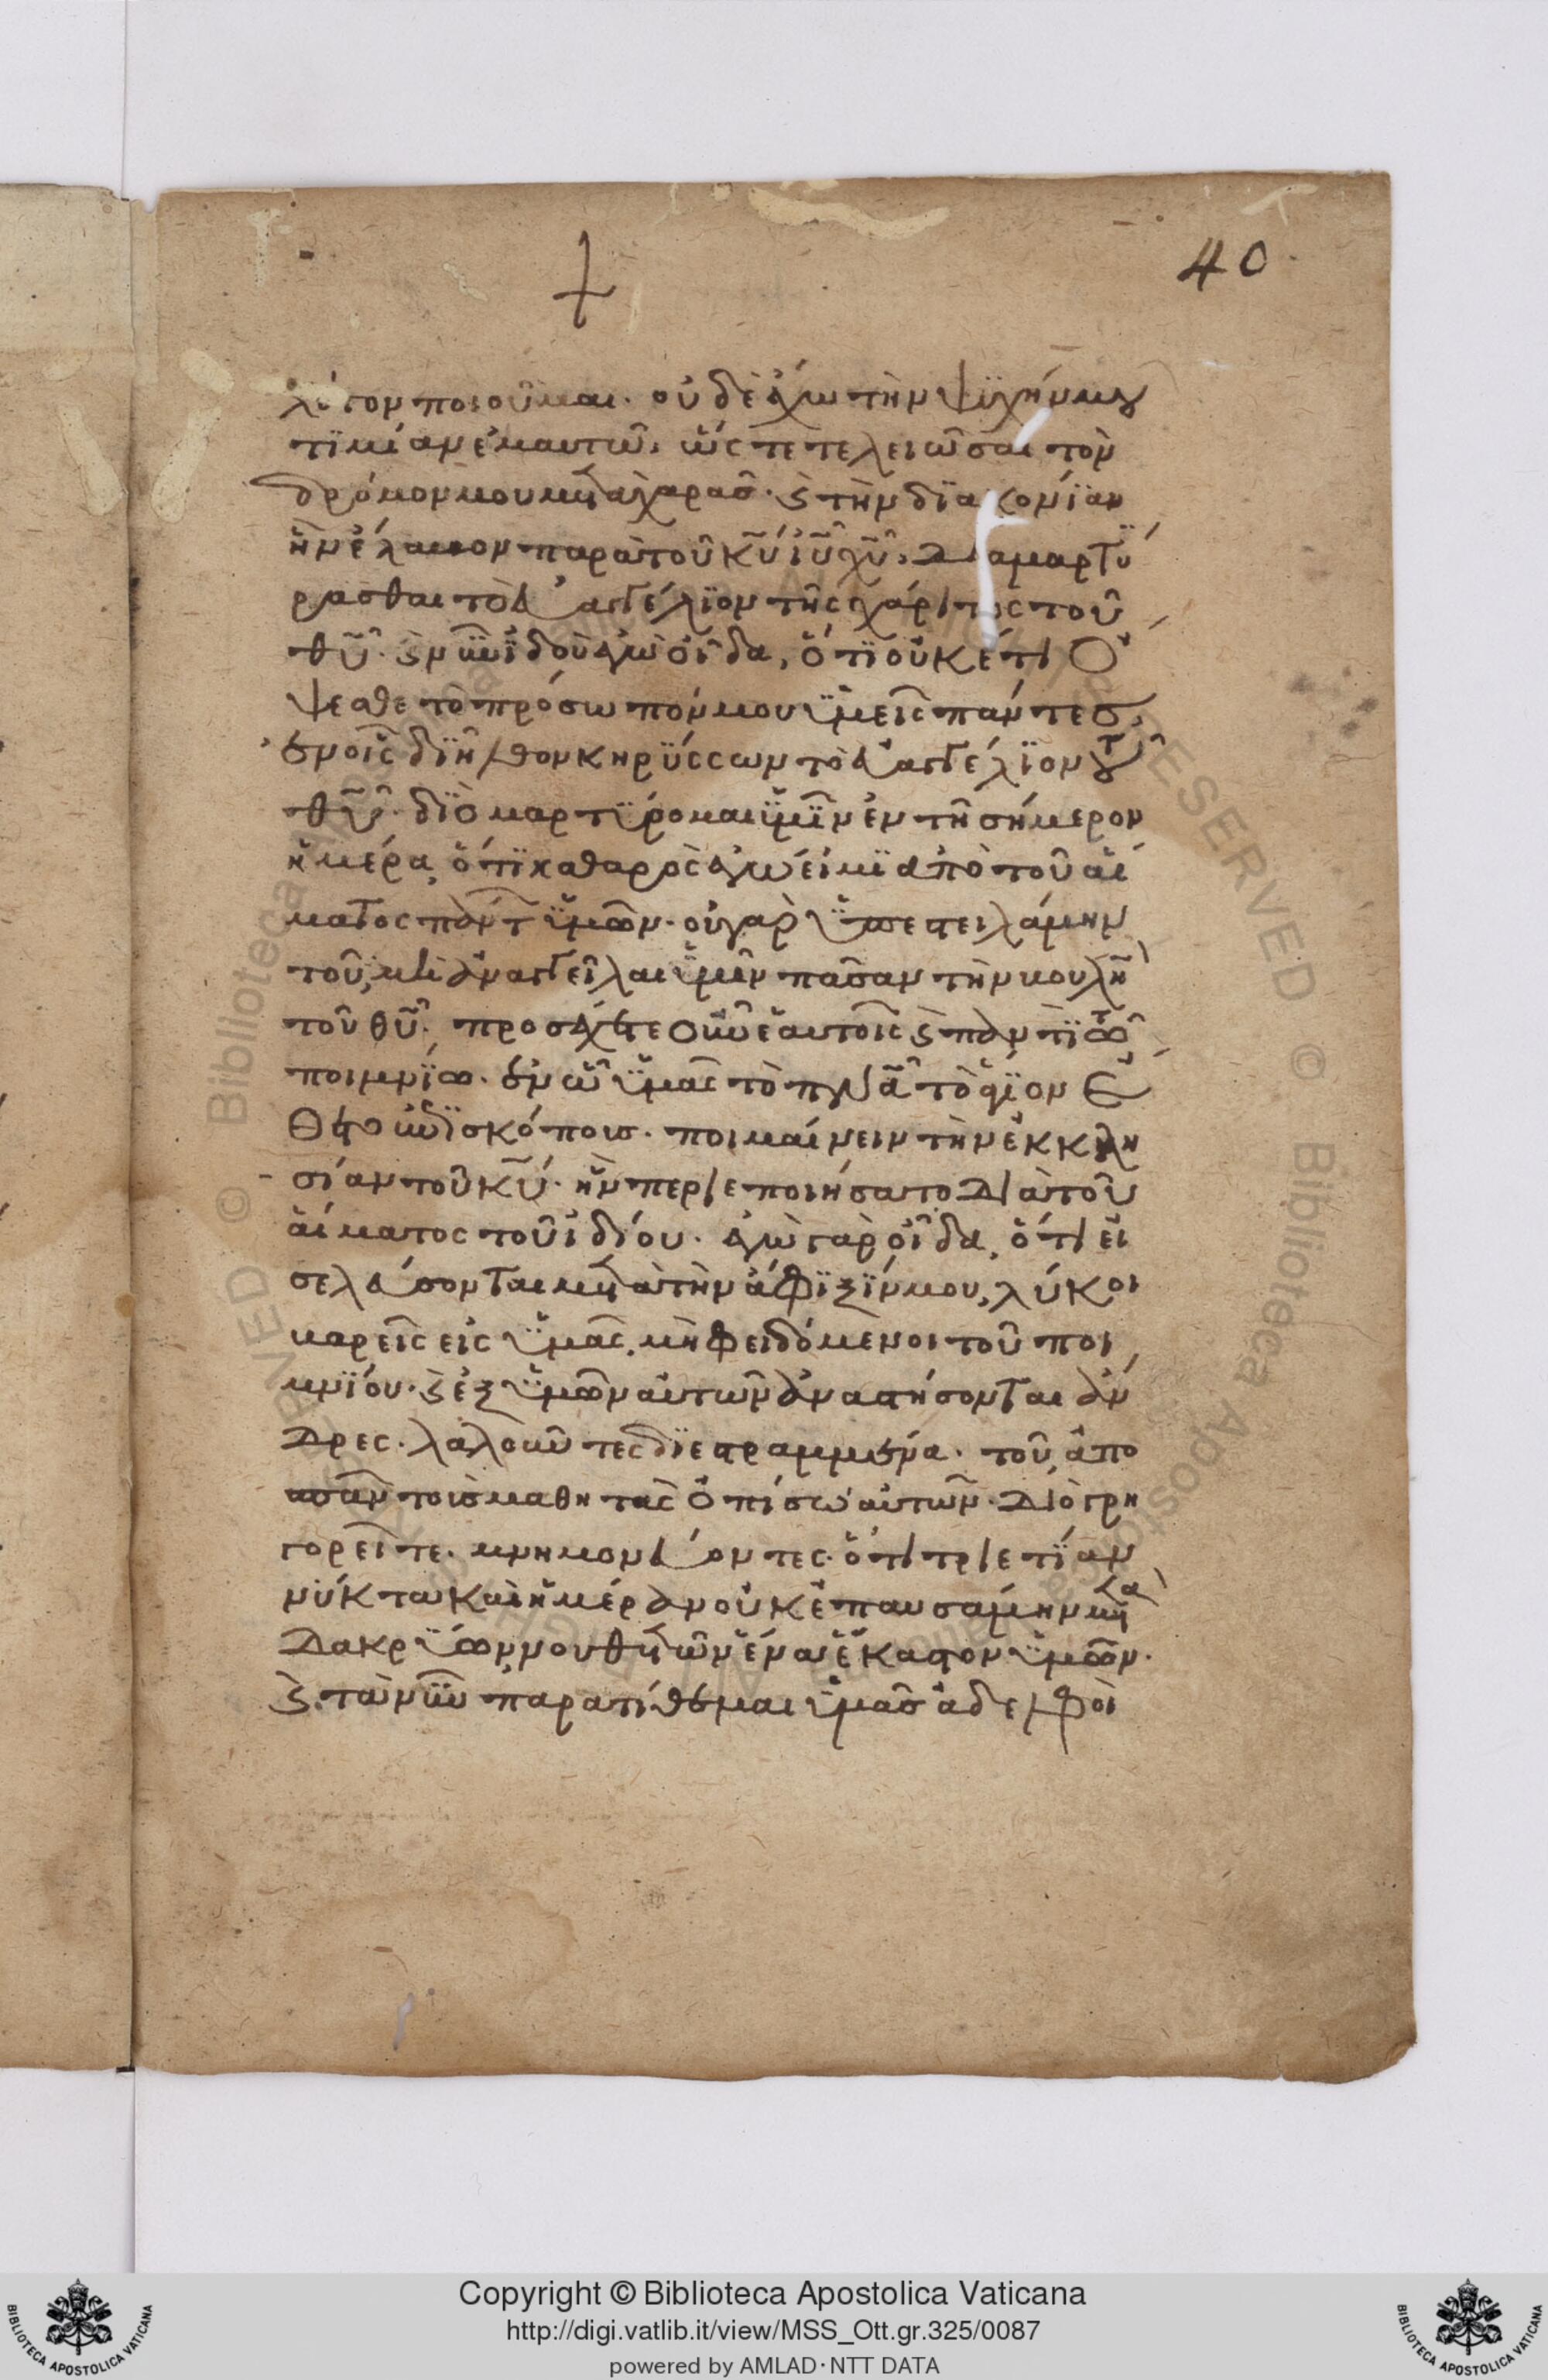 40
λόγον ποιοῦμαι. οὐδὲ ἔχω τὴν ψϋχήν μου
τϊμίαν ἐμαυτῶ, ὥς τε τελειῶσαι τὸν
δρόμον μου μετὰ χαρασ. ϗ τὴν δϊακονίαν
ἣν ἔλαβον παρὰ τοῦ κ̅υ̅ ἰ̅υ̅ χ̅υ̅, διαμαρτϋ
ρασθαι τὸ εὐαγγέλϊον τῆς χάριτος τοῦ
θ̅υ̅. ϗ νῦν ἰδοὺ ἐγὼ οἶδα, ὅτϊ οὐκέτι ὄ
ψεσθε τὸ πρόσωπόν μου ϋμεῖς πάντεσ,
ἐν οἷς δϊῆλθον κηρϋσσων τὸ εὐαγγέλϊον τοῦ
θ̅υ̅. δϊὸ μαρτϋρομαι ϋμῖν ἐν τῆ σήμερον
ἡμέρα, ὅτϊ καθαρὸς ἐγὼ εἰμϊ ἀπὸ τοῦ αἵ
ματος πάντ ϋμῶν. οὐ γαρ ϋπεστειλάμην
τοῦ, μὴ ἀναγγεῖλαι ϋμῖν πᾶσαν τὴν βουλὴ
τοῦ θ̅υ̅. προσέχετε οὖν ἑαυτοῖς ϗ παντϊ τῶ
ποιμνϊω. ἐν ὧ ϋμᾶς τὸ π̅ν̅α̅ τὸ ἅγϊον ἔ
θετο ἐπϊσκόπουσ. ποιμαίνειν τὴν ἐκκλη
σίαν τοῦ κ̅υ̅. ἣν περιεποιήσατο διὰ τοῦ
αἵματος τοῦ ἰδίου. ἐγὼ γαρ οἶδα, ὅτι εἰ
σελεύσονται μετὰ τὴν ἄφϊξϊν μου, λύκοι
βαρεῖς εἰς ϋμᾶς, μὴ φειδόμενοι τοῦ ποι
μνϊου. ϗ ἐξ ϋμῶν αὐτῶν ἀναστήσονται ἄν
δρες. λαλοῦντες δϊεστραμμένα. τοῦ, ἀπο
σπᾶν τοὺσ μαθητὰς ὀπίσω αὐτῶν. διὸ γρη
γορεῖτε. μνημονεύοντες. ὅτι τριετϊαν
νύκτα καὶ ἡμέραν οὐκ ἐπαυσάμην μετὰ
δακρϋων νουθετῶν ἕνα ἕκαστον ϋμῶν.
ϗ τανῦν παρατίθεμαι ϋμᾶσ ἀδελφοὶ
Copyright © Biblioteca Apostolica Vaticana
http://digi.vatlib.it/view/MSS_Ott.gr.325/0087
powered by AMLAD·NTT DATA